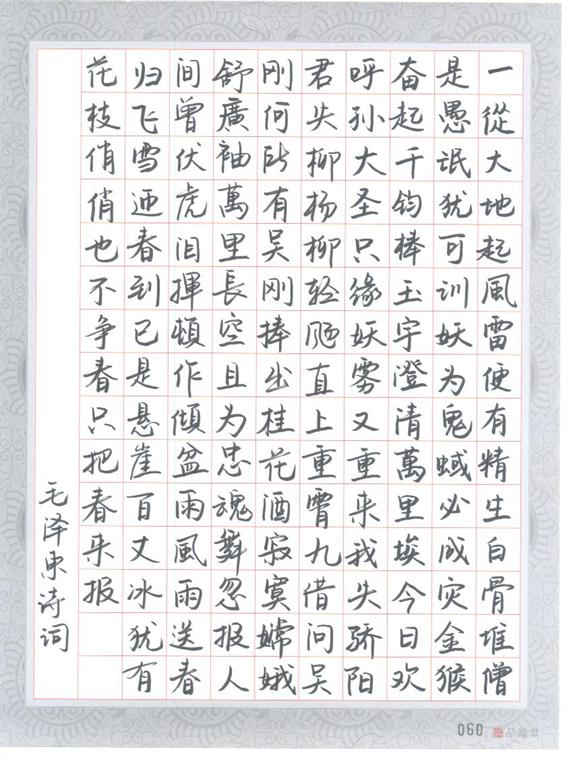 一從大地起風雷便有精生白骨堆僧
是愚氓犹可训妖为鬼蜮必成灾金猴
奋起千钧棒玉宇澄清萬里埃今日欢
呼孙大圣只缘妖雾又重来我失骄阳
君失柳杨柳轻飏直上重霄九借问吴
刚何所有吴刚捧出桂花酒寂寞嫦娥
舒廣袖萬里長空且为忠魂舞忽报人
间曾伏虎泪揮頓作傾盆雨風雨送春
归飞雪迎春到已是悬崖百丈冰犹有
花枝俏俏也不争春只把春来报
毛泽东诗词
060 品翰堂